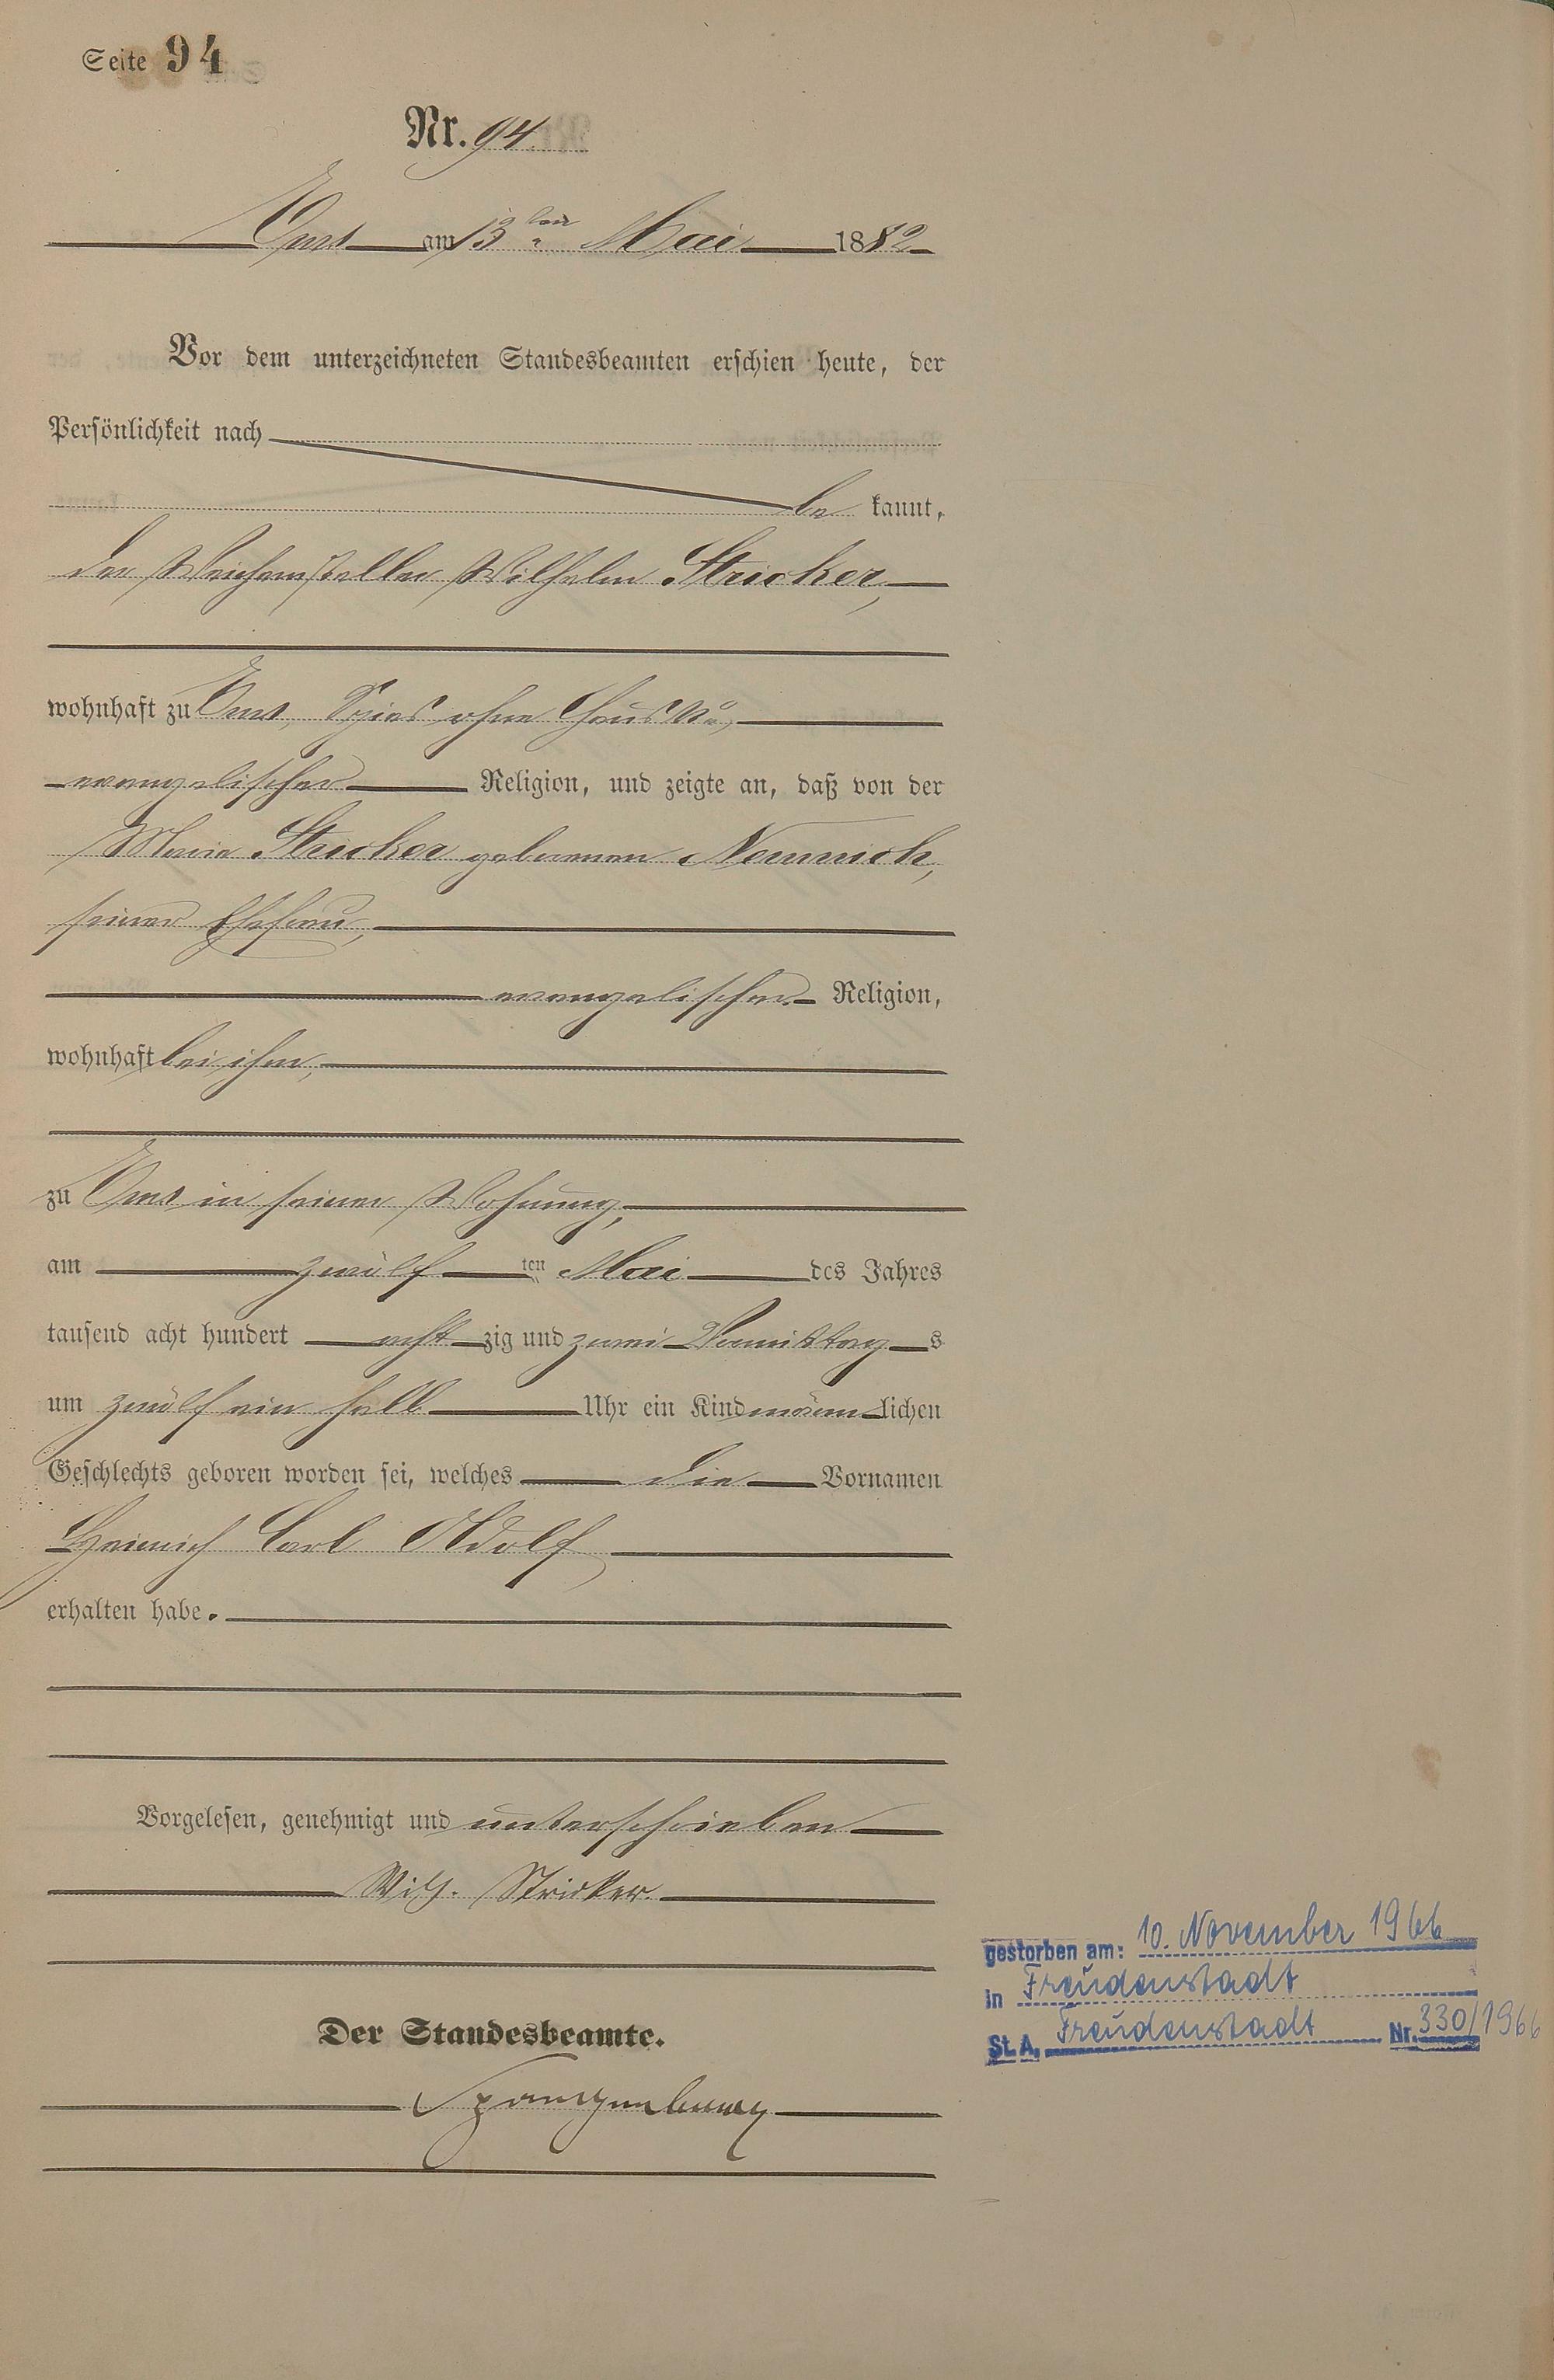 Seite 94
Nr. 94.
Ems am 13ten Mai 1882
Vor dem unterzeichneten Standesbeamten erschien heute, der
Persönlichkeit nach
be kannt,
der Weichensteller Wilhelm Stricker,
wohnhaft zu Ems, Spies ohne Haus No,
evangelischer Religion, und zeigte an, daß von der
Maria Stricker geborenen Nemnich,
seiner Ehefrau,
evangelischer Religion,
wohnhaft bei ihm,
zu Ems in seiner Wohnung,
am zwölf ten Mai des Jahres
tausend acht hundert acht zig und zwei Vormittag s
um zwölf ein halb Uhr ein Kind männ lichen
Geschlechts geboren worden sei, welches die Vornamen
Heinrich Carl Adolf
erhalten habe.
Vorgelesen, genehmigt und unterschrieben
Wilh. Stricker.
Der Standesbeamte.
Spangenberg
gestorben am: 10. November 1966
in Freudenstadt
St. A. Freudenstadt Nr. 330/1966